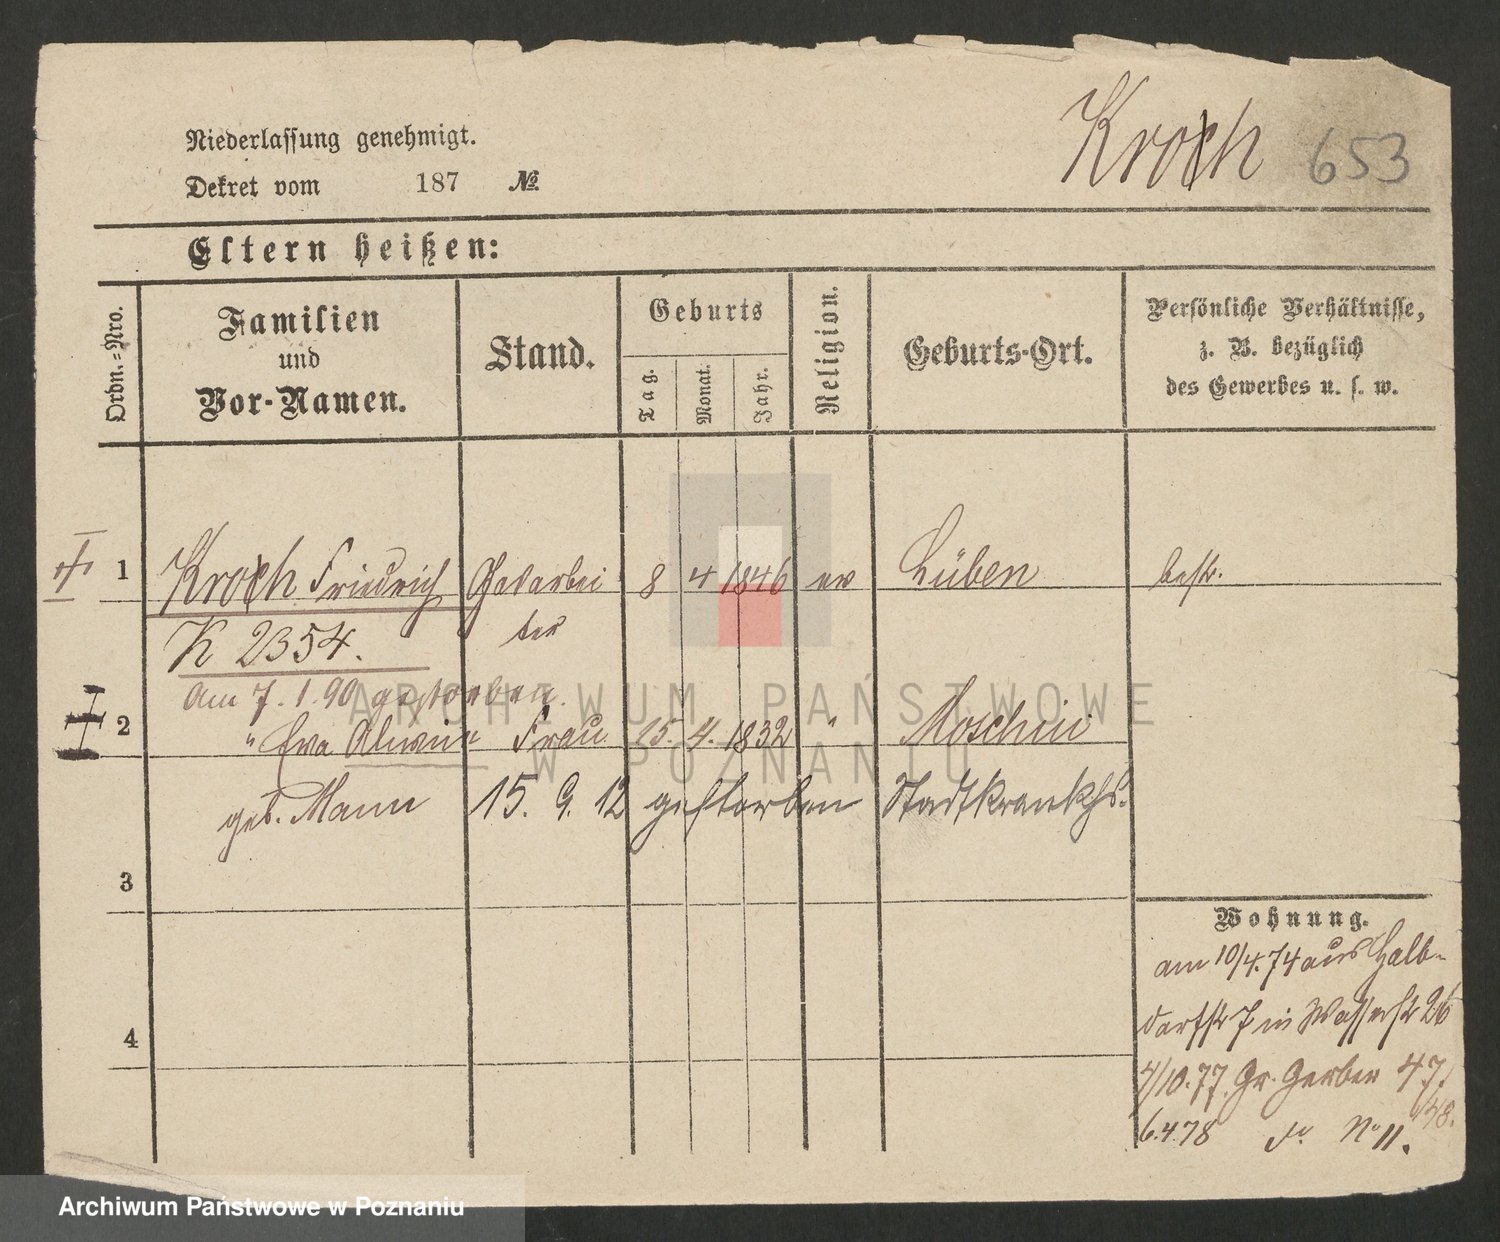 Kroch 653
Niederlassung genehmigt.
Dekret vom 187 №
Eltern heißen:
Ordn.-Nro.
Familien
und
Vor-Namen.
Stand.
Geburts
Tag.
Monat.
Jahr.
Religion.
Geburts-Ort.
Persönliche Verhältnisse,
z. B. bezüglich
des Gewerbes u. s. w.
1 Kroch Friedrich Gasarbei 8 4 1846 ev Lüben bestr.
ter
K 2354.
am 7. 1. 90 gestorben.
2 " Eva 15. 4. 1832 " Moschin
Frau
geb. Mann 15. 9. 12 gestorben Stadtkrankhs.
3
4
Wohnung.
am 10/4. 74 aus Halb-
dorfstr 7 in Wasserstr 26
4/10. 77. Gr. Gerber 47.
6.4.78 do No 11.
ARCHIWUM PAŃSTWOWE
W POZNANIU
Archiwum Państwowe w Poznaniu